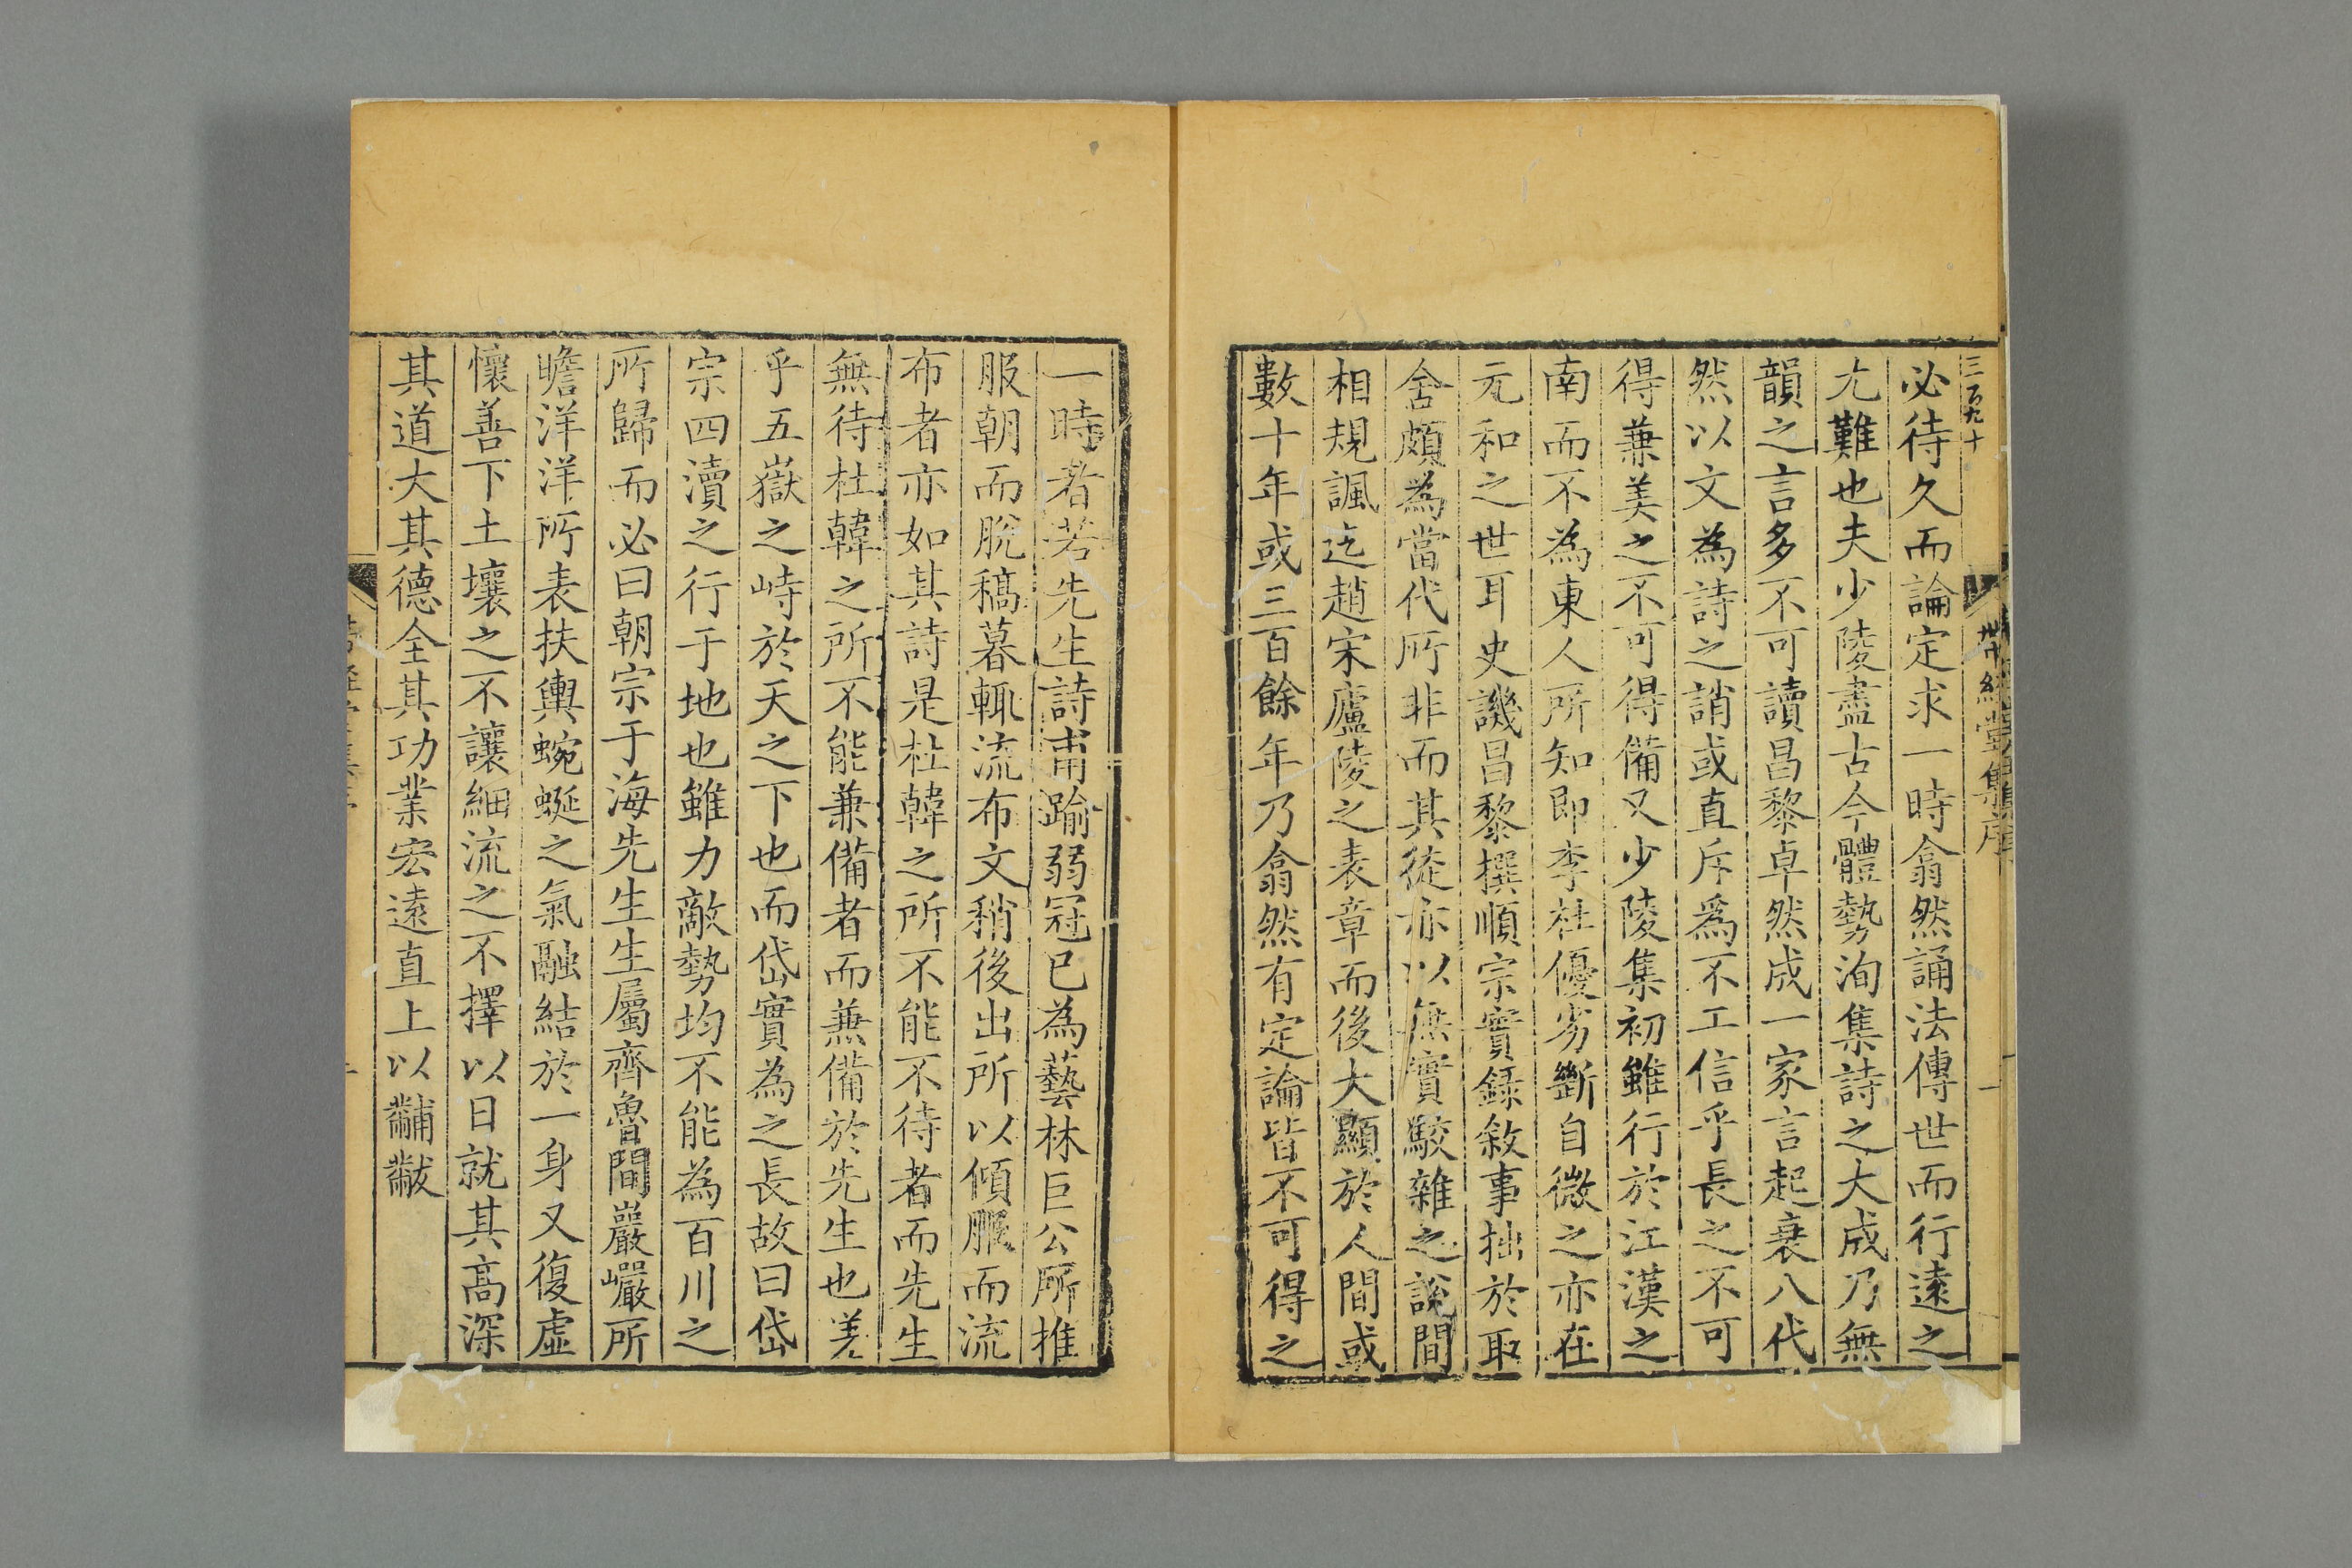 三百九十
必待久而論定求一時翕然誦法傳世而行遠之
尤難也夫少陵盡古今體勢洵集詩之大成乃無
韻之言多不可讀昌黎卓然成一家言起衰八代
然以文為詩之誚或直斥爲不工信乎長之不可
得兼美之不可得備又少陵集初雖行於江漢之
南而不為東人所知即李杜優劣斷自微之亦在
元和之世耳史譏昌黎撰順宗實録敘事拙於取
舍頗為當代所非而其徒亦以無實駮雜之說間
相規諷迄趙宋廬陵之表章而後大顯於人間或
數十年或三百餘年乃翕然有定論皆不可得之
一時者若先生詩甫踰弱冠已為藝林巨公所推
服朝而脫稿暮輒流布文稍後出所以傾服而流
布者亦如其詩是杜韓之所不能不待者而先生
無待杜韓之所不能兼備者而兼備於先生也差
乎五嶽之峙於天之下也而岱實為之長故曰岱
宗四瀆之行于地也雖力敵勢均不能為百川之
所歸而必曰朝宗于海先生生屬齊魯間巖巖所
瞻洋洋所表扶輿蜿蜒之氣融結於一身又復虛
懷善下土壤之不讓細流之不擇以日就其高深
其道大其德全其功業宏遠直上以黼黻